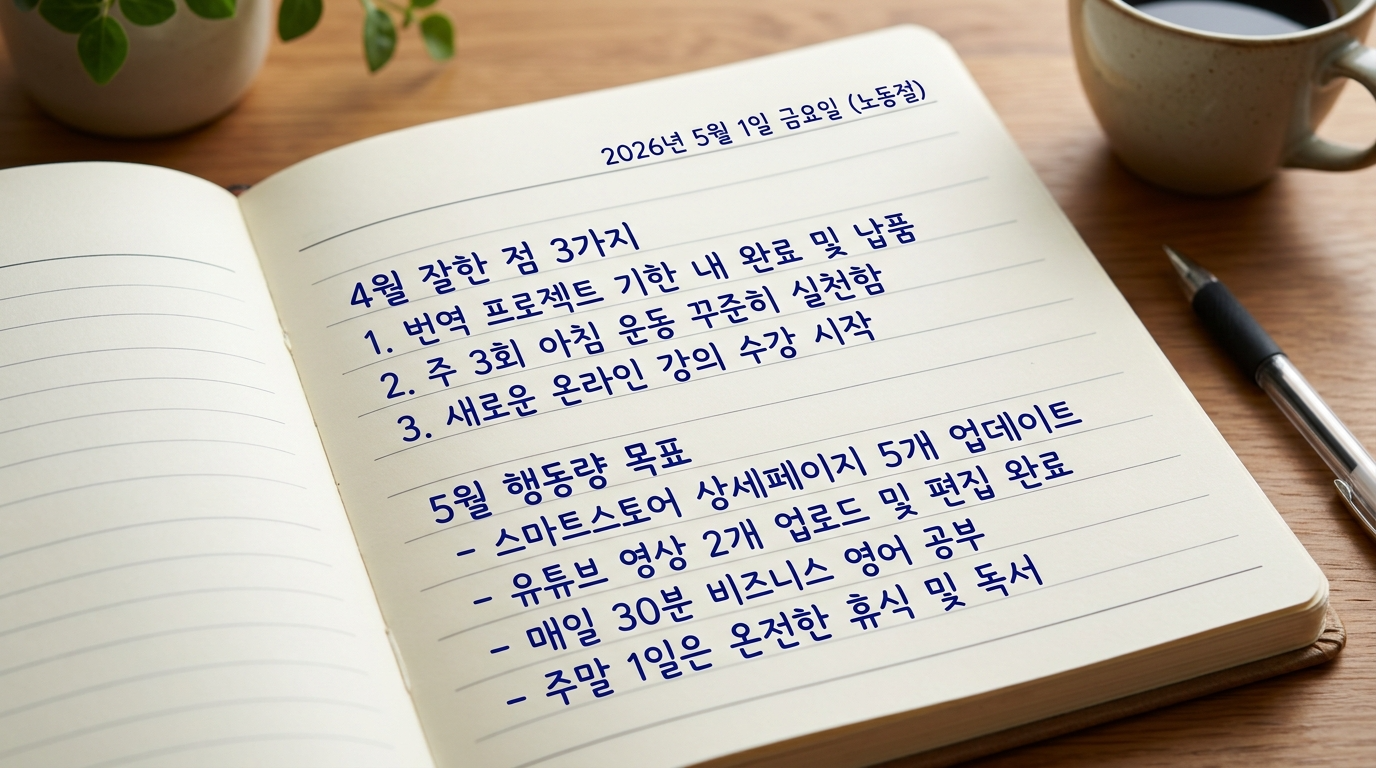 2026년 5월 1일 금요일 (노동절)
4월 잘한 점 3가지
1. 번역 프로젝트 기한 내 완료 및 납품
2. 주 3회 아침 운동 꾸준히 실천함
3. 새로운 온라인 강의 수강 시작
5월 행동량 목표
- 스마트스토어 상세페이지 5개 업데이트
- 유튜브 영상 2개 업로드 및 편집 완료
- 매일 30분 비즈니스 영어 공부
- 주말 1일은 온전한 휴식 및 독서